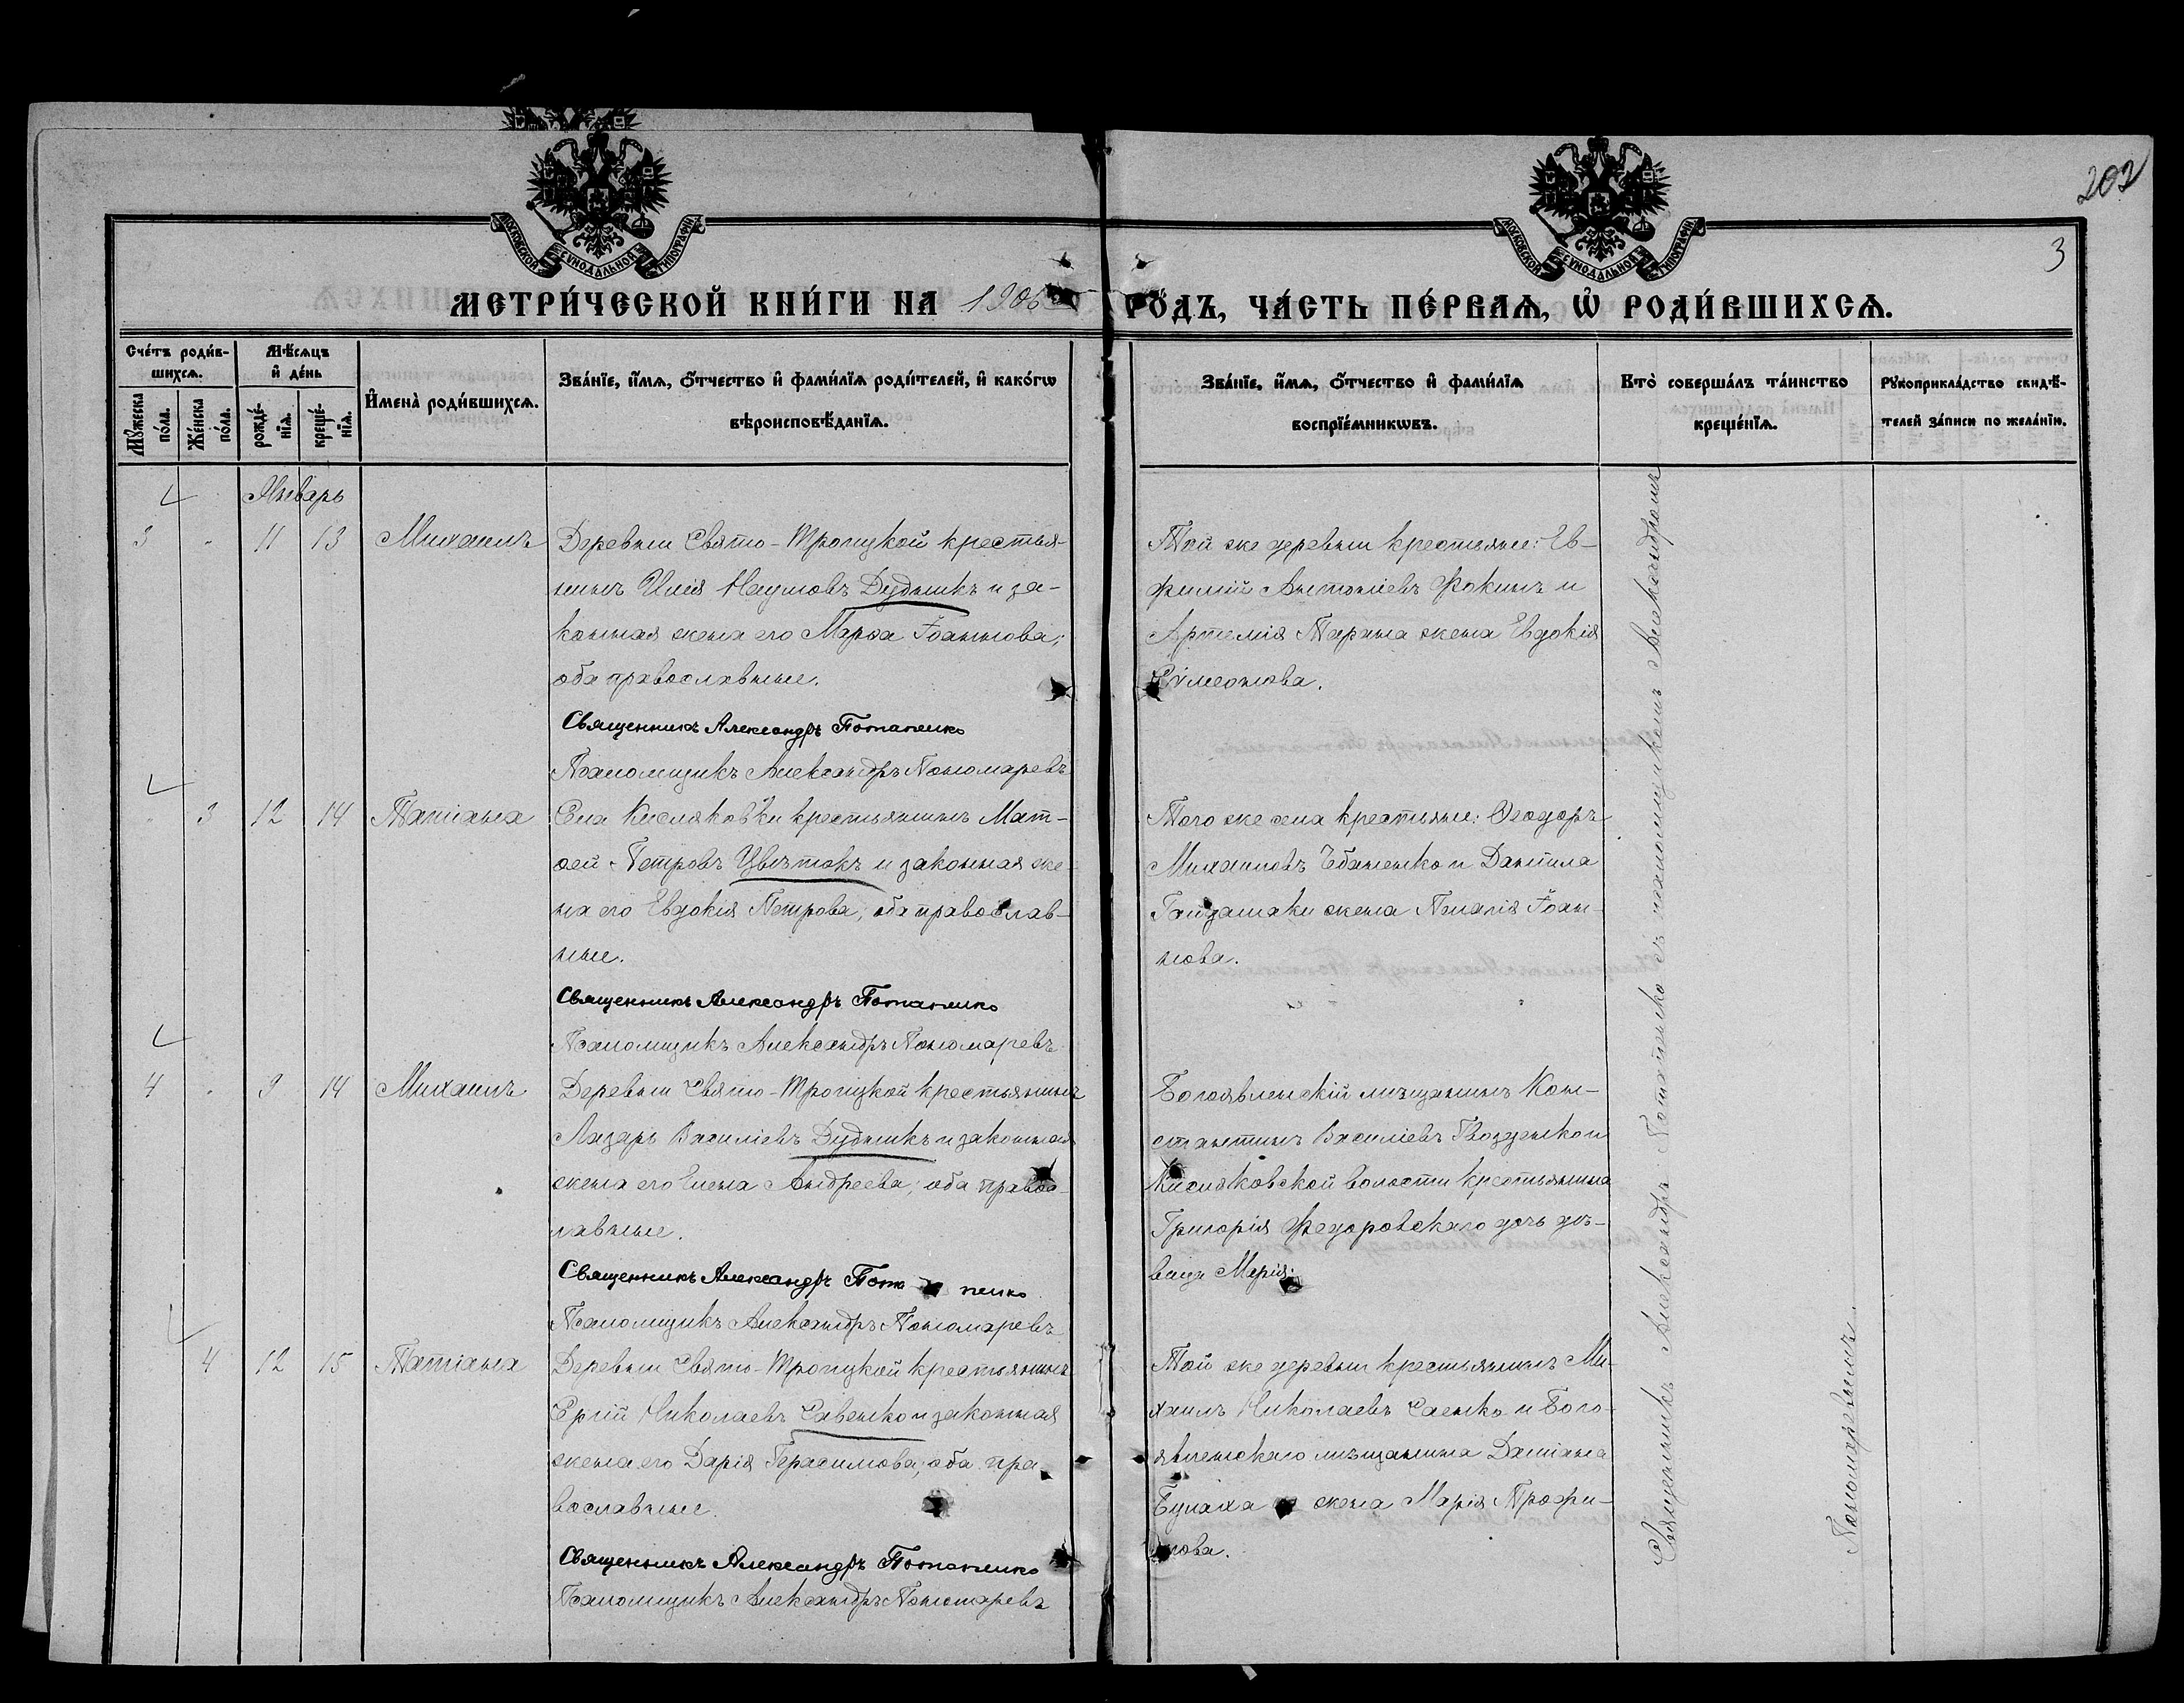 202
3
МОСКОВСКОЙ СУНОДАЛЬНОЙ ТИПОГРАФІИ
МОСКОВСКОЙ СУНОДАЛЬНОЙ ТИПОГРАФІИ
МЕТРИ́ЧЕСКОЙ КНИ́ГИ НА 1906 ГО́ДЪ, ЧА́СТЬ ПЕ́РВАЯ, Ѡ҆ РОДИ́ВШИХСЯ.
Сче́тъ роди́в-
шихся.
Мꙋ́жеска по́ла.
Же́нска по́ла.
Мѣ́сяцъ
и҆ де́нь
рожде́-
нїя.
креще́-
нїя.
И҆мена̀ роди́вшихся.
Зва́нїе, и҆́мя, ѻ҆́тчество и҆ фами́лїя роди́телей, и҆ како́гѡ
вѣроисповѣ́данїя.
Зва́нїе, и҆́мя, ѻ҆́тчество и҆ фами́лїя
воспрїе́мникѡвъ.
Кто̀ соверша́лъ та́инство
креще́нїя.
Рꙋкоприкла́дство свидѣ́-
телей за́писи по жела́нїю.
Январь
3 - 11 13 Михаилъ
Деревни Свято-Троицкой крестья-
нинъ Илія Наумовъ Дудникъ и за-
конная жена его Марѳа Іоаннова;
оба православные.
Священникъ Александръ Потапенко
Псаломщикъ Александръ Пономаревъ
Той же деревни крестьяне: Ев-
фимій Антоніевъ Фокинъ и
Артемія Тарана жена Евдокія
Сѵмеонова.
- 3 12 14 Татіана
Села Кисляковки крестьянинъ Мат-
ѳей Петровъ Цвѣтокъ и законная же-
на его Евдокія Петрова; оба православ-
ные.
Священникъ Александръ Потапенко
Псаломщикъ Александръ Пономаревъ
Того же села крестьяне: Ѳеодоръ
Михаиловъ Чбаненко и Даніила
Гайдамаки жена Пелагія Іоан-
нова.
4 - 9 14 Михаилъ
Деревни Свято-Троицкой крестьянинъ
Лазарь Василіевъ Дудникъ и законная
жена его Елена Андреева; оба правос-
лавные.
Священникъ Александръ Потапенко
Псаломщикъ Александръ Пономаревъ
Богоявленскій мѣщанинъ Кон-
стантинъ Василіевъ Гвозденко и
Кисляковской волости крестьянина
Григорія Федоровскаго дочь дѣ-
вица Марія.
4 12 15 Татіана
Деревни Свято-Троицкой крестьянинъ
Сергій Николаевъ Савенко и законная
жена его Дарія Герасимова; оба пра-
вославные.
Священникъ Александръ Потапенко
Псаломщикъ Александръ Пономаревъ
Той же деревни крестьянинъ Ми-
хаилъ Николаевъ Саенко и Бого-
явленскаго мѣщанина Даміана
жена Марія Трофи-
мова.
Священникъ Александръ Потапенко съ псаломщикомъ Александромъ
Пономаревымъ.